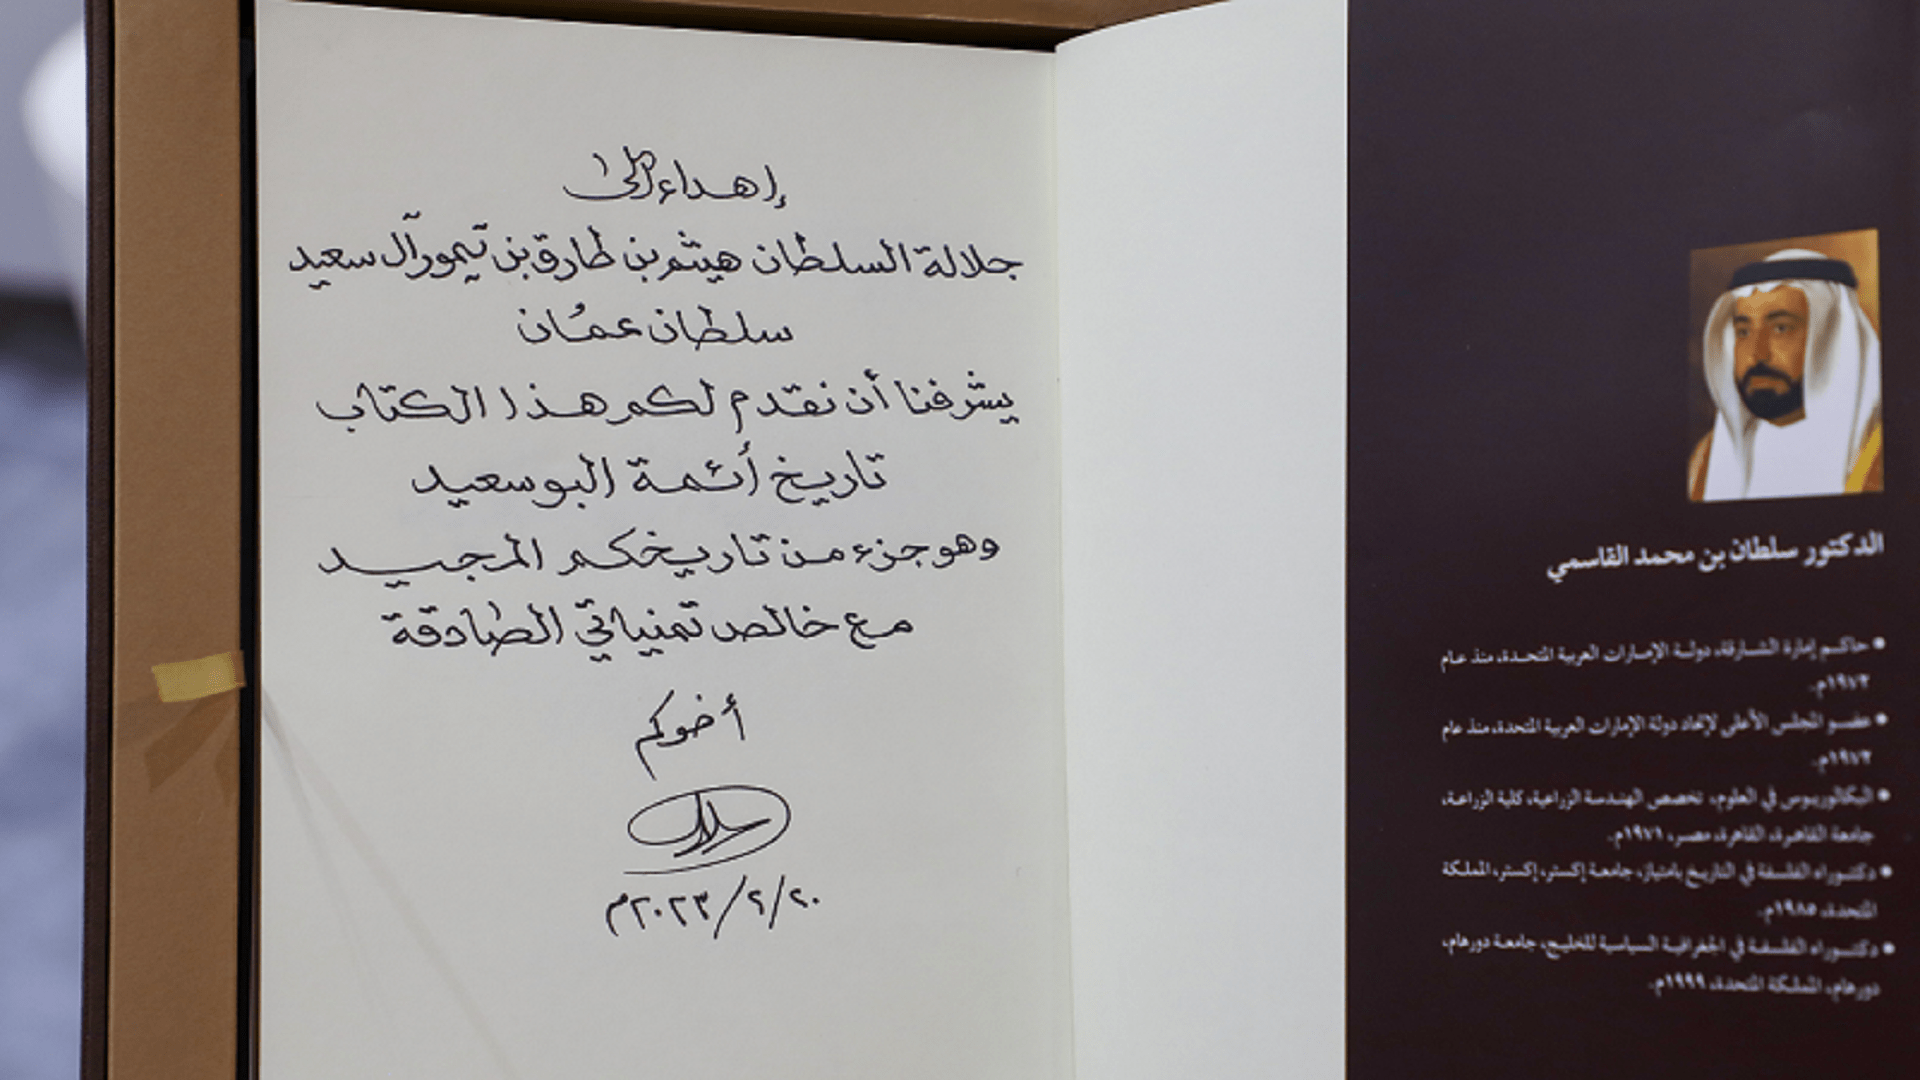 إهداء إلى
جلالة السلطان هيثم بن طارق بن تيمور آل سعيد
سلطان عُمان
يشرفنا أن نقدم لكم هذا الكتاب
تاريخ أئمة البوسعيد
وهو جزء من تاريخكم المجيد
مع خالص تمنياتي الصادقة
أخوكم
٢٠/٢/٢٠٢٣م
الدكتور سلطان بن محمد القاسمي
• حاكم إمارة الشارقة، دولة الإمارات العربية المتحدة، منذ عام
١٩٧٢م.
• عضو المجلس الأعلى لاتحاد دولة الإمارات العربية المتحدة، منذ عام
١٩٧٢م.
• البكالوريوس في العلوم، تخصص الهندسة الزراعية، كلية الزراعة،
جامعة القاهرة، القاهرة، مصر، ١٩٧١م.
• دكتوراه الفلسفة في التاريخ بامتياز، جامعة إكستر، إكستر، المملكة
المتحدة، ١٩٨٥م.
• دكتوراه الفلسفة في الجغرافية السياسية للخليج، جامعة دورهام،
دورهام، المملكة المتحدة، ١٩٩٩م.